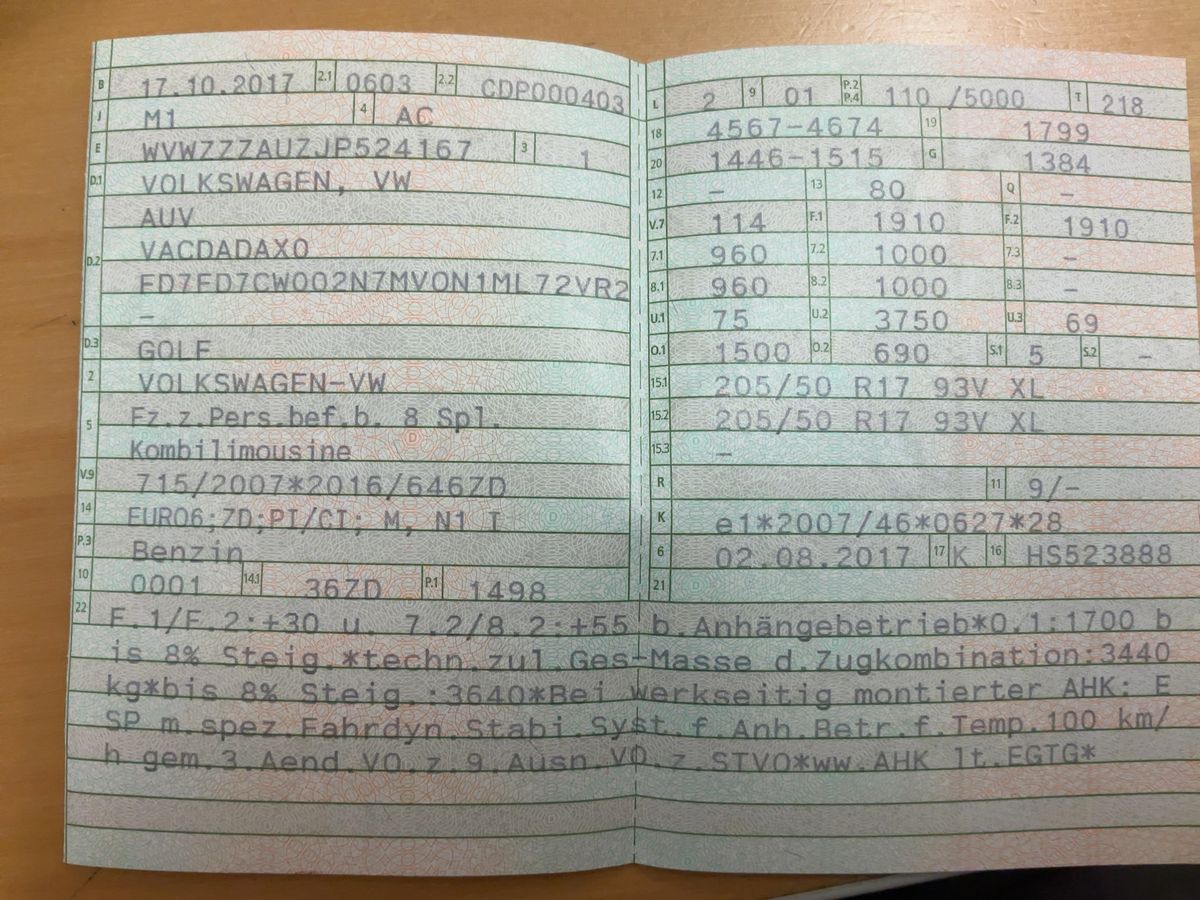 B 17.10.2017 2.1 0603 2.2 CDP000403
J M1 4 AC
E WVWZZZAUZJP524167 3 1
D.1 VOLKSWAGEN, VW
AUV
D.2 VACDADAX0
FD7FD7CW002N7MVON1ML72VR2
–
D.3 GOLF
2 VOLKSWAGEN-VW
5 Fz.z.Pers.bef.b. 8 Spl.
Kombilimousine
V.9 715/2007*2016/646ZD
14 EURO6;ZD;PI/CI; M, N1 I
P.3 Benzin
10 0001 14.1 36ZD P.1 1498
L 2 9 01 P.2 P.4 110 /5000 T 218
18 4567-4674 19 1799
20 1446-1515 G 1384
12 – 13 80 Q –
V.7 114 F.1 1910 F.2 1910
7.1 960 7.2 1000 7.3 –
8.1 960 8.2 1000 8.3 –
U.1 75 U.2 3750 U.3 69
O.1 1500 O.2 690 S.1 5 S.2 –
15.1 205/50 R17 93V XL
15.2 205/50 R17 93V XL
15.3 –
R 11 9/-
K e1*2007/46*0627*28
6 02.08.2017 17 K 16 HS523888
21
22 F.1/F.2:+30 u. 7.2/8.2:+55 b.Anhängebetrieb*O.1:1700 b
is 8% Steig.*techn.zul.Ges-Masse d.Zugkombination:3440
kg*bis 8% Steig.:3640*Bei werkseitig montierter AHK: E
SP m.spez.Fahrdyn.Stabi.Syst.f.Anh.Betr.f.Temp.100 km/
h gem.3.Aend.VO.z.9.Ausn.VO.z.STVO*ww.AHK lt.EGTG*